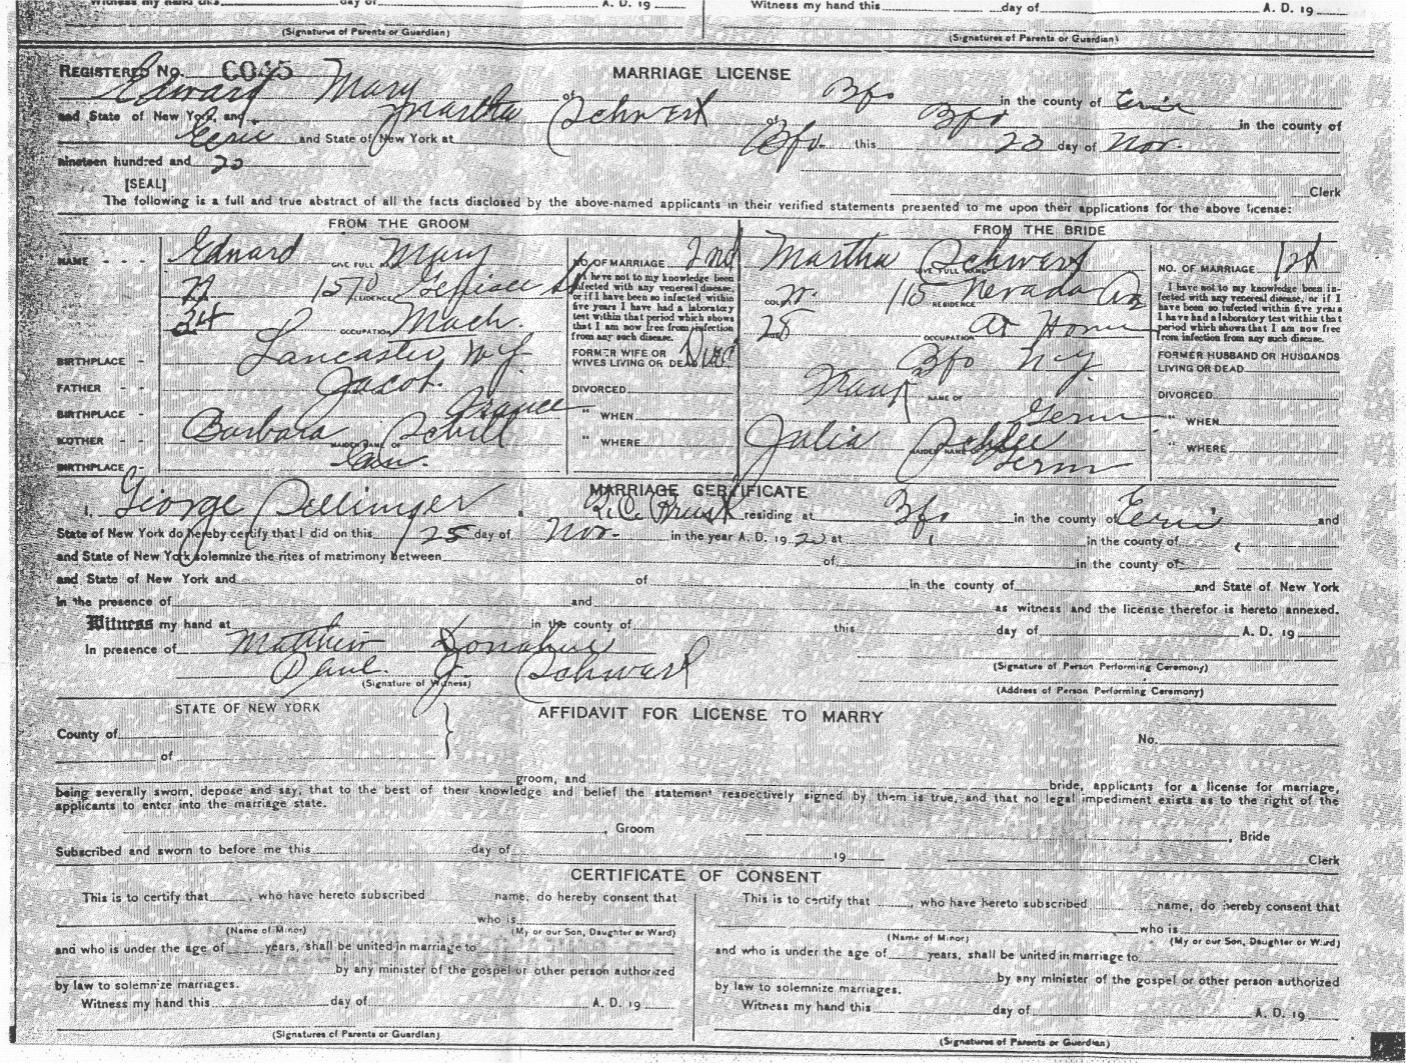 Witness my hand this day of A. D. 19 Witness my hand this day of A. D. 19
(Signatures of Parents or Guardian) (Signatures of Parents or Guardian)
REGISTERED No. MARRIAGE LICENSE
Edward Mary of Bfo in the county of Erie
and State of New York, and Martha Schwert of Bfo in the county of
Erie and State of New York at Bfo. this 23 day of Nov.
nineteen hundred and 20
[SEAL] Clerk
The following is a full and true abstract of all the facts disclosed by the above-named applicants in their verified statements presented to me upon their applications for the above license:
FROM THE GROOM FROM THE BRIDE
NAME - - - Edward Mary GIVE FULL NAME NO. OF MARRIAGE 2nd Martha Schwert GIVE FULL NAME NO. OF MARRIAGE 1st
W 1570 Genesee St RESIDENCE COLOR W. 115 RESIDENCE Nevada Av
I have not to my knowledge been infected with any venereal disease, or if I have been so infected within five years I have had a laboratory test within that period which shows that I am now free from infection from any such disease.
I have not to my knowledge been infected with any venereal disease, or if I have been so infected within five years I have had a laboratory test within that period which shows that I am now free from infection from any such disease.
24 OCCUPATION Mach. 28 OCCUPATION At Home
BIRTHPLACE - Lancaster N.Y. FORMER WIFE OR WIVES LIVING OR DEAD Bfo N.Y. FORMER HUSBAND OR HUSBANDS LIVING OR DEAD
FATHER - - Jacob. DIVORCED Frank NAME OF DIVORCED
BIRTHPLACE - France " WHEN Germ " WHEN
MOTHER - - Barbara Schill MAIDEN NAME OF " WHERE Julia Schlee MAIDEN NAME OF " WHERE
BIRTHPLACE - Germ
MARRIAGE CERTIFICATE
I, George Dellinger a R.C. Priest residing at Bfo in the county of Erie and
State of New York do hereby certify that I did on this 25 day of Nov. in the year A. D. 19 20 at in the county of
and State of New York solemnize the rites of matrimony between of in the county of
and State of New York and of in the county of and State of New York
in the presence of and as witness and the license therefor is hereto annexed.
Witness my hand at in the county of this day of A. D. 19
In presence of Matthew Donahue (Signature of Person Performing Ceremony)
Paul J. Schwert
(Signature of Witness) (Address of Person Performing Ceremony)
STATE OF NEW YORK AFFIDAVIT FOR LICENSE TO MARRY
County of No.
of
groom, and bride, applicants for a license for marriage,
being severally sworn, depose and say, that to the best of their knowledge and belief the statement respectively signed by them is true, and that no legal impediment exists as to the right of the
applicants to enter into the marriage state.
, Groom , Bride
Subscribed and sworn to before me this day of 19 Clerk
CERTIFICATE OF CONSENT
This is to certify that , who have hereto subscribed name, do hereby consent that This is to certify that , who have hereto subscribed name, do hereby consent that
who is who is
(Name of Minor) (My or our Son, Daughter or Ward) (Name of Minor) (My or our Son, Daughter or Ward)
and who is under the age of years, shall be united in marriage to and who is under the age of years, shall be united in marriage to
by any minister of the gospel or other person authorized by any minister of the gospel or other person authorized
by law to solemnize marriages. by law to solemnize marriages.
Witness my hand this day of A. D. 19 Witness my hand this day of A. D. 19
(Signatures of Parents or Guardian) (Signatures of Parents or Guardian)